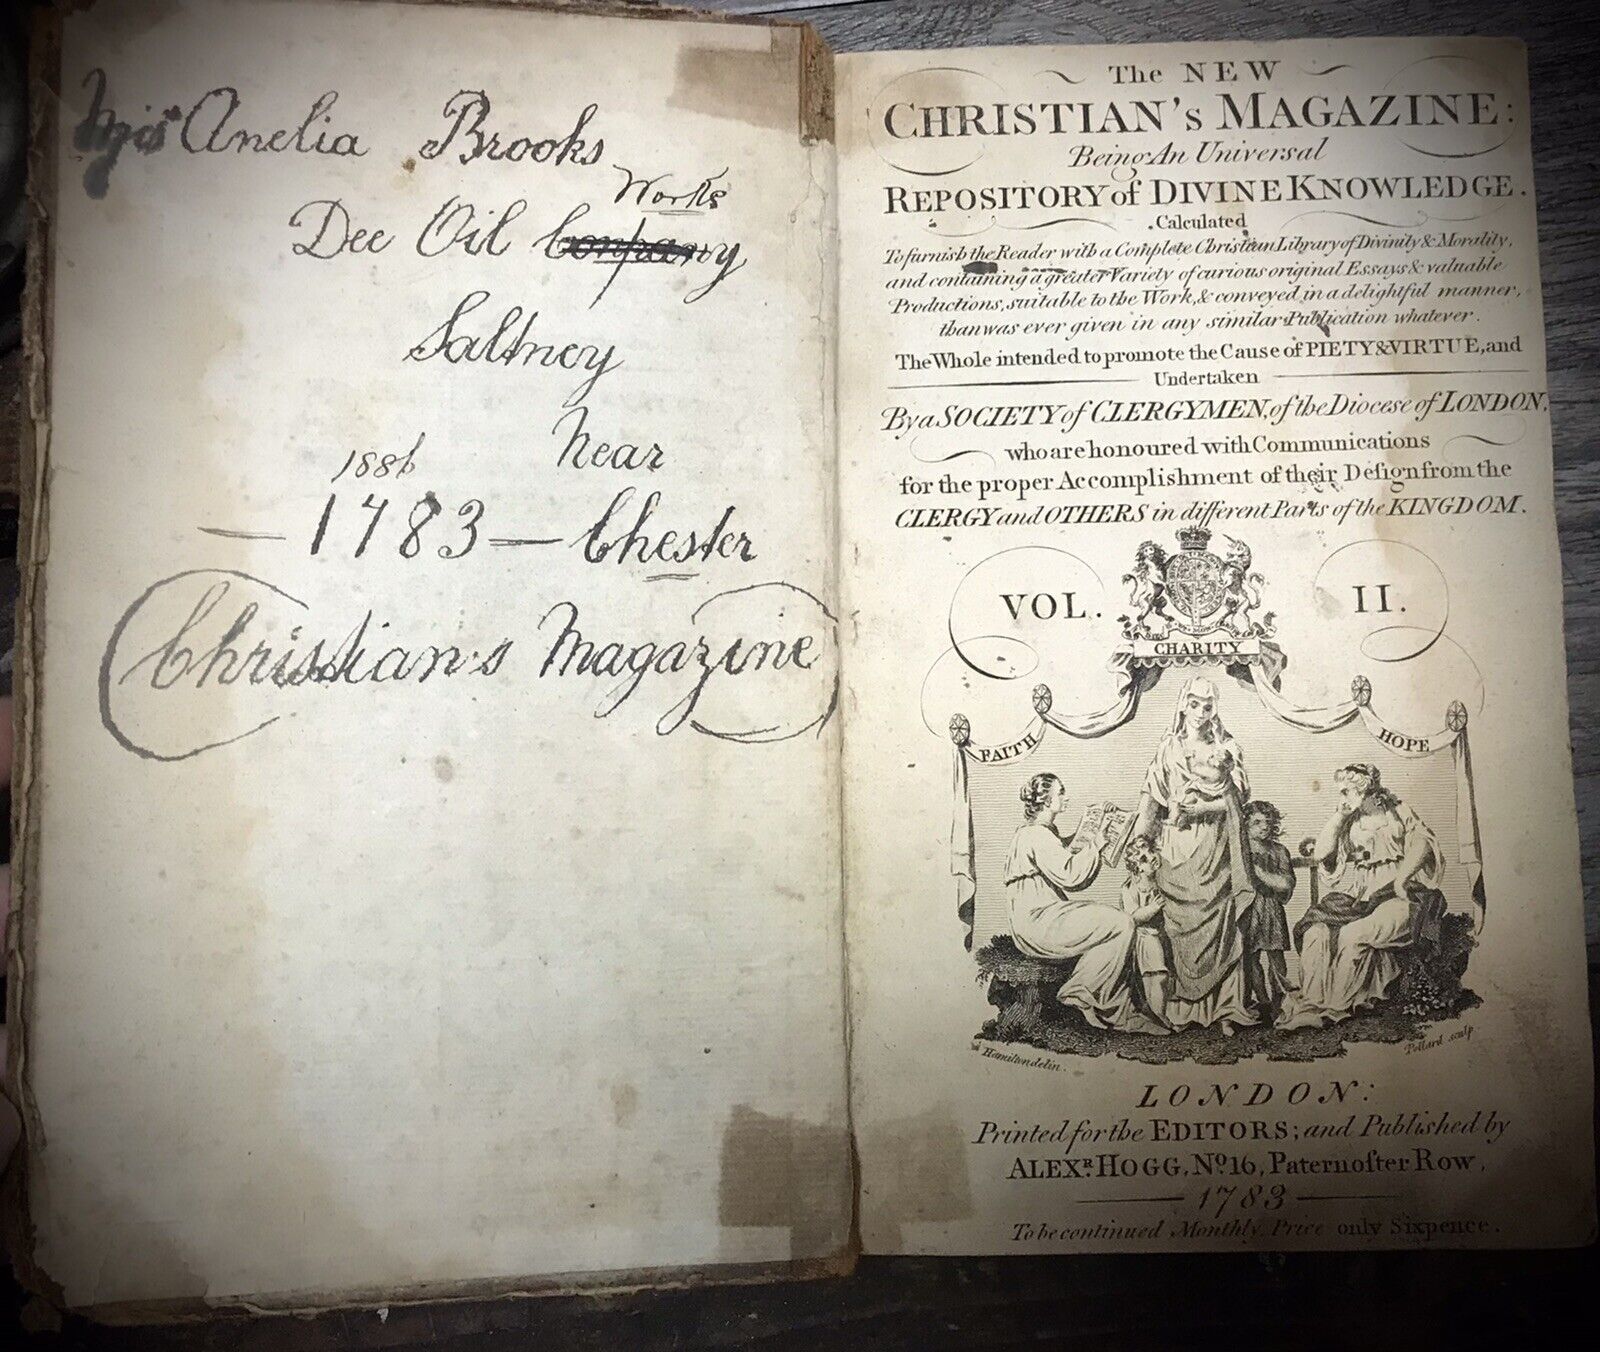 Miss Anelia Brooks
Works
Dee Oil Company
Saltney
Near
1886
— 1783 — Chester
Christian's Magazine
The NEW
CHRISTIAN's MAGAZINE:
Being An Universal
REPOSITORY of DIVINE KNOWLEDGE.
Calculated
To furnish the Reader with a Complete Christian Library of Divinity & Morality,
and containing a greater Variety of curious original Essays & valuable
Productions, suitable to the Work, & conveyed in a delightful manner,
than was ever given in any similar Publication whatever.
The Whole intended to promote the Cause of PIETY & VIRTUE, and
Undertaken
By a SOCIETY of CLERGYMEN, of the Diocese of LONDON,
who are honoured with Communications
for the proper Accomplishment of their Deſign from the
CLERGY and OTHERS in different Parts of the KINGDOM.
VOL. II.
CHARITY
FAITH
HOPE
Hamilton delin.
Pollard sculp
LONDON:
Printed for the EDITORS; and Published by
ALEXR. HOGG, No. 16, Paternoſter Row,
1783
To be continued Monthly. Price only Sixpence.